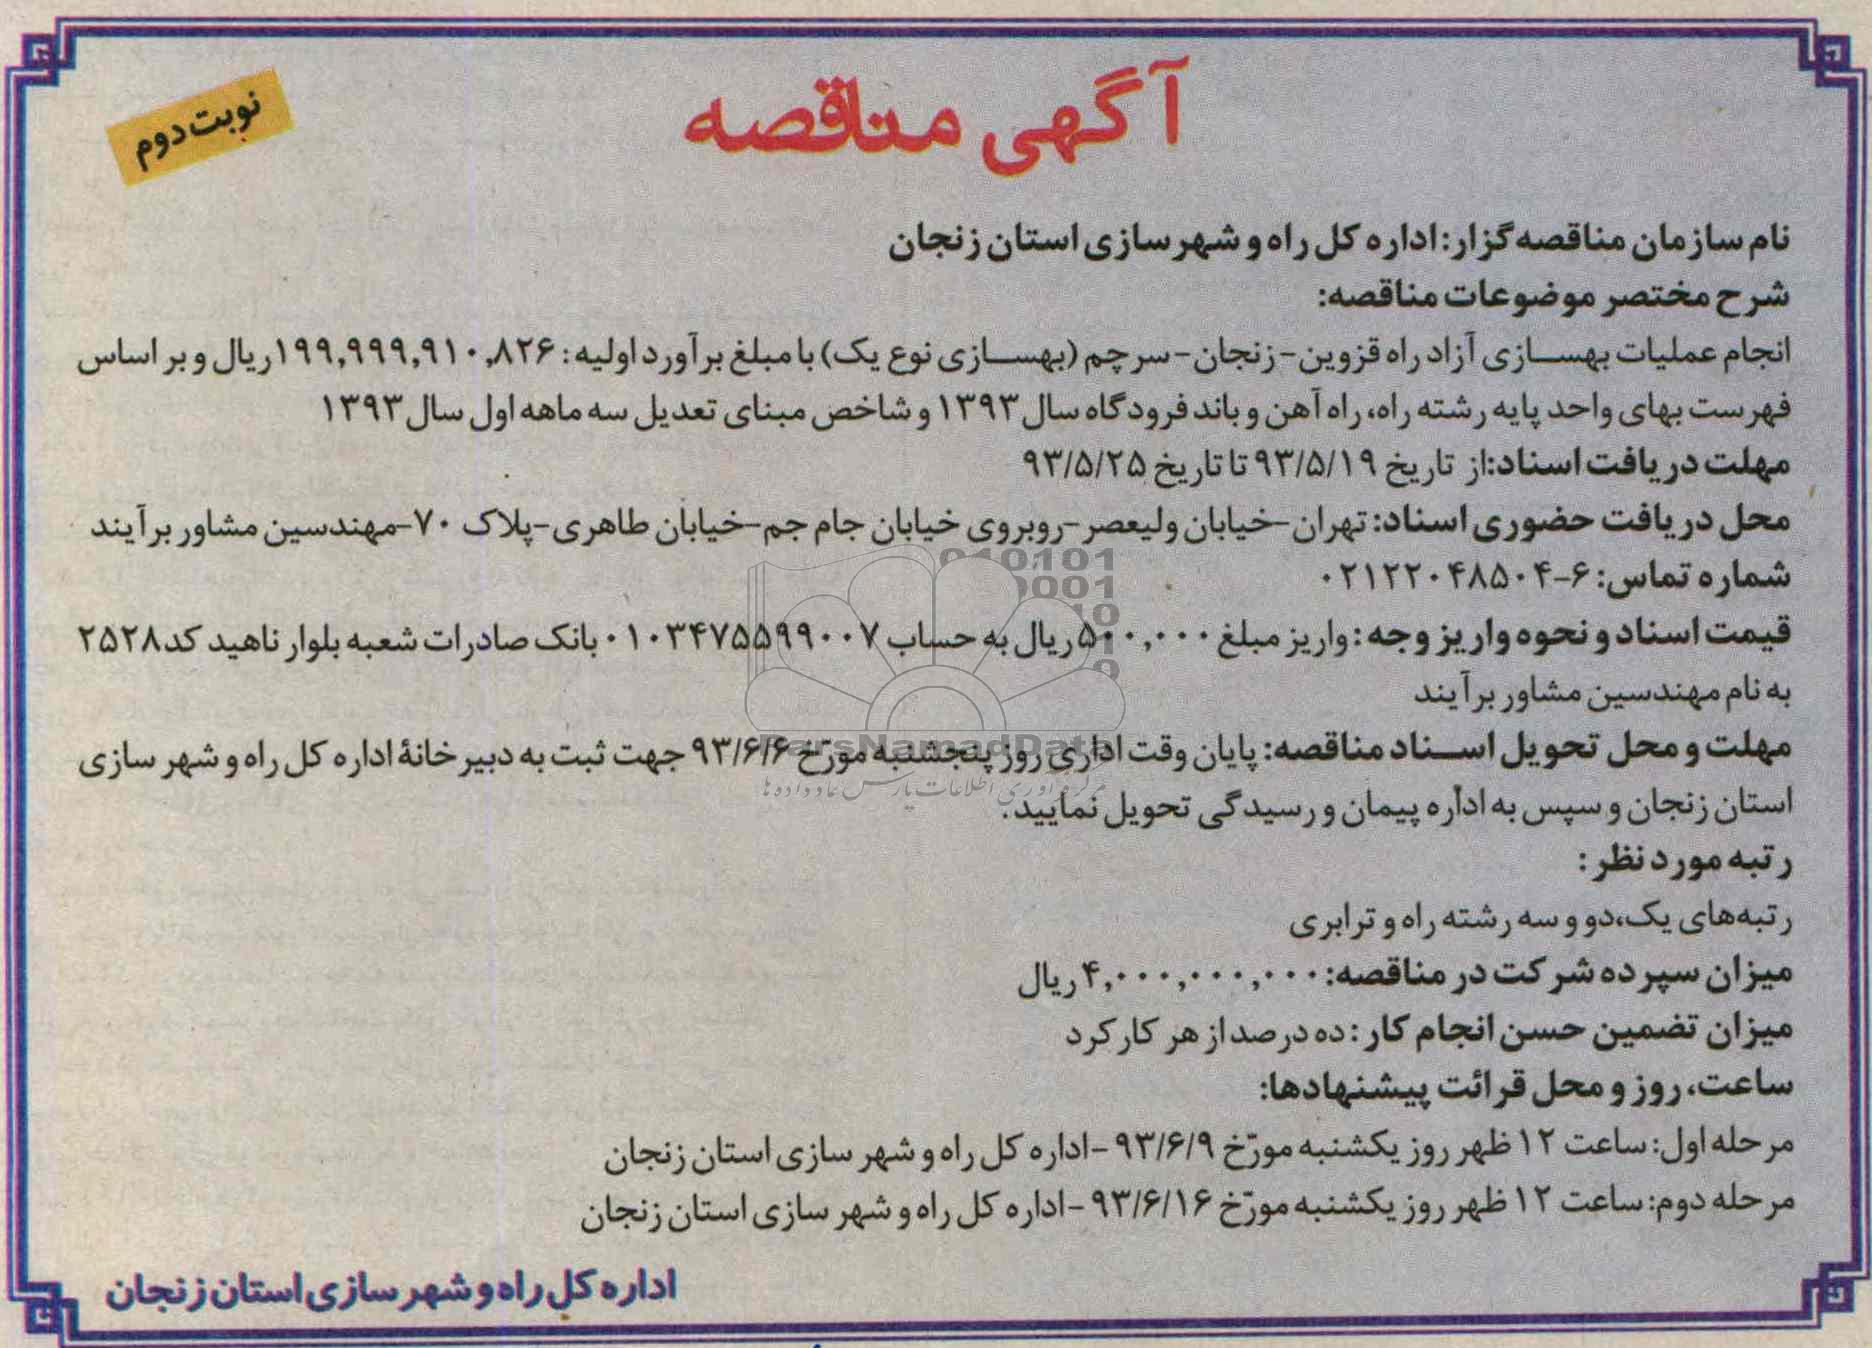 آگهی مناقصه
نوبت دوم
نام سازمان مناقصه‌گزار: اداره کل راه و شهرسازی استان زنجان
شرح مختصر موضوعات مناقصه:
انجام عملیات بهسازی آزاد راه قزوین-زنجان-سرچم (بهسازی نوع یک) با مبلغ برآورد اولیه: ۱۹۹,۹۹۹,۹۱۰,۸۲۶ ریال و بر اساس
فهرست بهای واحد پایه رشته راه، راه آهن و باند فرودگاه سال ۱۳۹۳ و شاخص مبنای تعدیل سه ماهه اول سال ۱۳۹۳
مهلت دریافت اسناد: از تاریخ ۹۳/۵/۱۹ تا تاریخ ۹۳/۵/۲۵
محل دریافت حضوری اسناد: تهران-خیابان ولیعصر-روبروی خیابان جام جم-خیابان طاهری-پلاک ۷۰-مهندسین مشاور برآیند
شماره تماس: ۶-۰۲۱۲۲۰۴۸۵۰۴
قیمت اسناد و نحوه واریز وجه: واریز مبلغ ۵۰۰,۰۰۰ ریال به حساب ۰۱۰۳۴۷۵۵۹۹۰۰۷ بانک صادرات شعبه بلوار ناهید کد ۲۵۲۸
به نام مهندسین مشاور برآیند
مهلت و محل تحویل اسناد مناقصه: پایان وقت اداری روز پنجشنبه مورّخ ۹۳/۶/۶ جهت ثبت به دبیرخانهٔ اداره کل راه و شهر سازی
استان زنجان و سپس به اداره پیمان و رسیدگی تحویل نمایید.
رتبه مورد نظر:
رتبه‌های یک،دو و سه رشته راه و ترابری
میزان سپرده شرکت در مناقصه: ۴,۰۰۰,۰۰۰,۰۰۰ ریال
میزان تضمین حسن انجام کار: ده درصد از هر کارکرد
ساعت، روز و محل قرائت پیشنهادها:
مرحله اول: ساعت ۱۲ ظهر روز یکشنبه مورّخ ۹۳/۶/۹ -اداره کل راه و شهر سازی استان زنجان
مرحله دوم: ساعت ۱۲ ظهر روز یکشنبه مورّخ ۹۳/۶/۱۶ -اداره کل راه و شهر سازی استان زنجان
اداره کل راه و شهر سازی استان زنجان
ParsNamadData